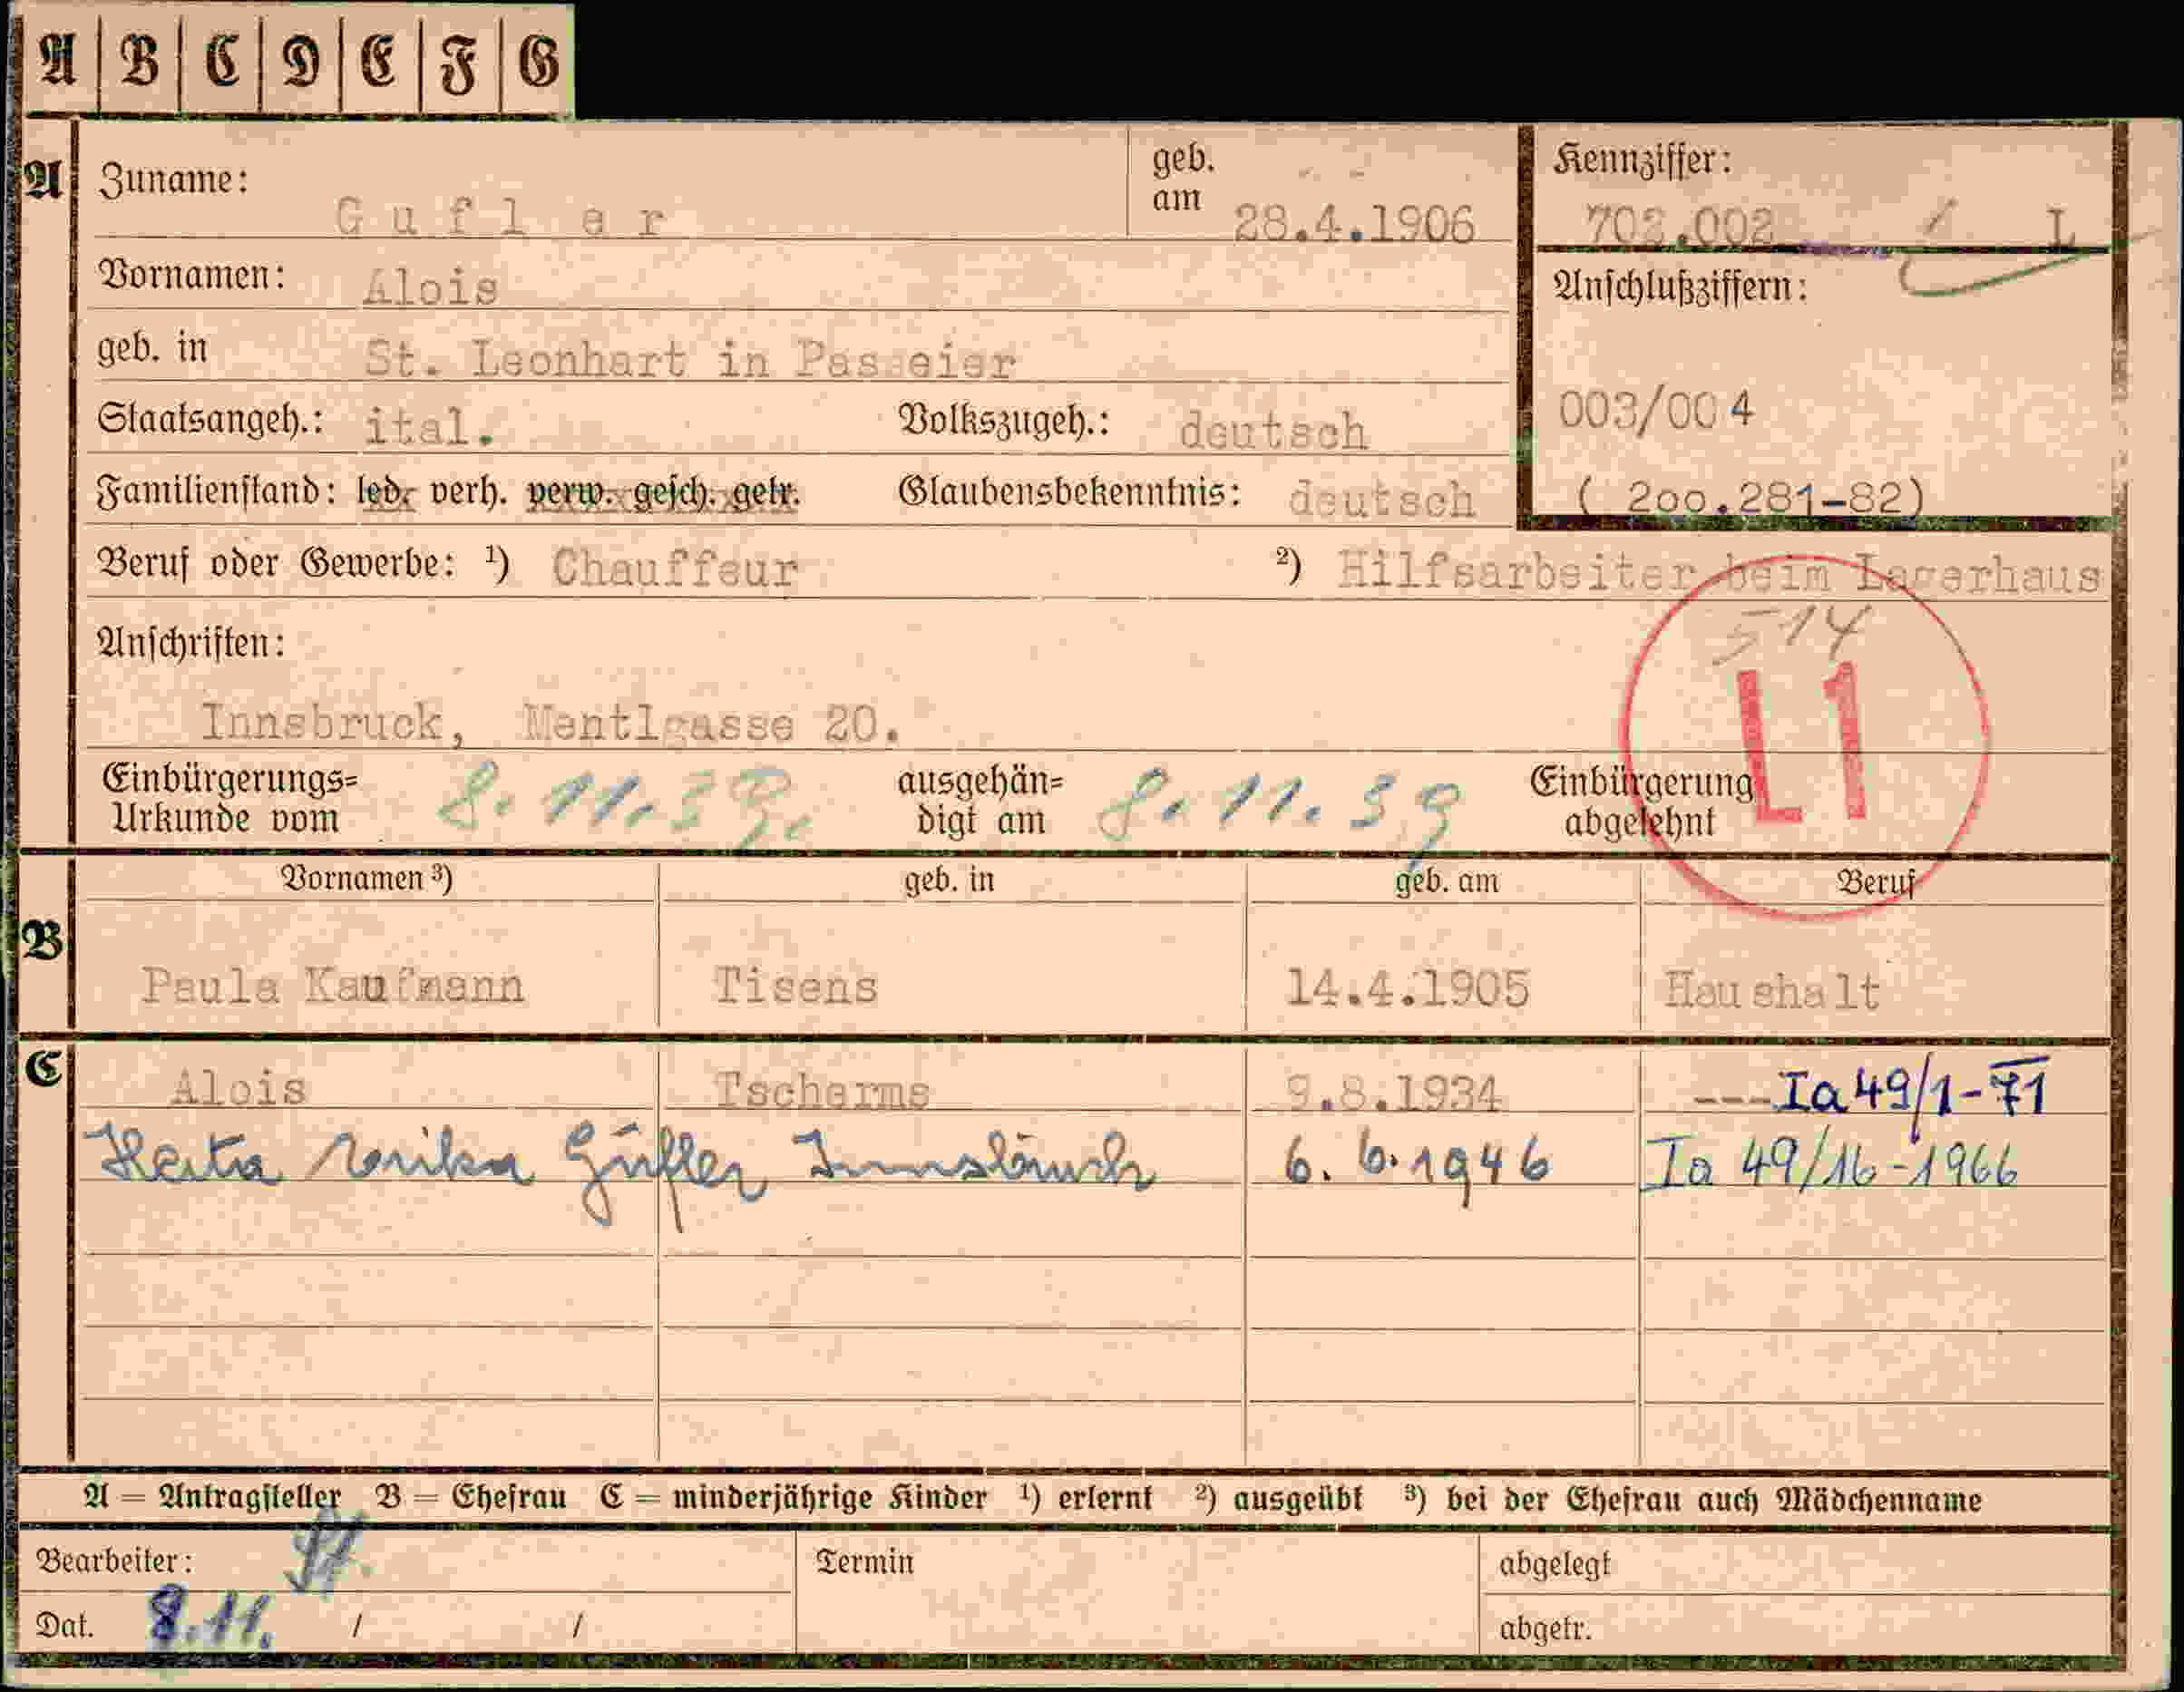 A B C D E F G
A Zuname: Gufler geb. am 28.4.1906
Kennziffer: 702.002 / L
Vornamen: Alois
Anschlußziffern:
geb. in St. Leonhart in Passeier
003/004
Staatsangeh.: ital. Volkszugeh.: deutsch
Familienstand: led. verh. verw. gesch. getr. Glaubensbekenntnis: deutsch
( 2oo.281-82)
Beruf oder Gewerbe: ¹) Chauffeur ²) Hilfsarbeiter beim Lagerhaus
514
L1
Anschriften:
Innsbruck, Mentlgasse 20.
Einbürgerungs= Urkunde vom 8.11.39. ausgehän= digt am 8.11.39 Einbürgerung abgelehnt
Vornamen ³) geb. in geb. am Beruf
B Paula Kaufmann Tisens 14.4.1905 Haushalt
C Alois Tscherms 9.8.1934 --- Ia 49/1-71
Herta Erika Gufler Innsbruck 6. 6. 1946 Ia 49/16-1966
A = Antragsteller B = Ehefrau C = minderjährige Kinder ¹) erlernt ²) ausgeübt ³) bei der Ehefrau auch Mädchenname
Bearbeiter:
Termin
abgelegt
Dat. 8.11. / /
abgetr.